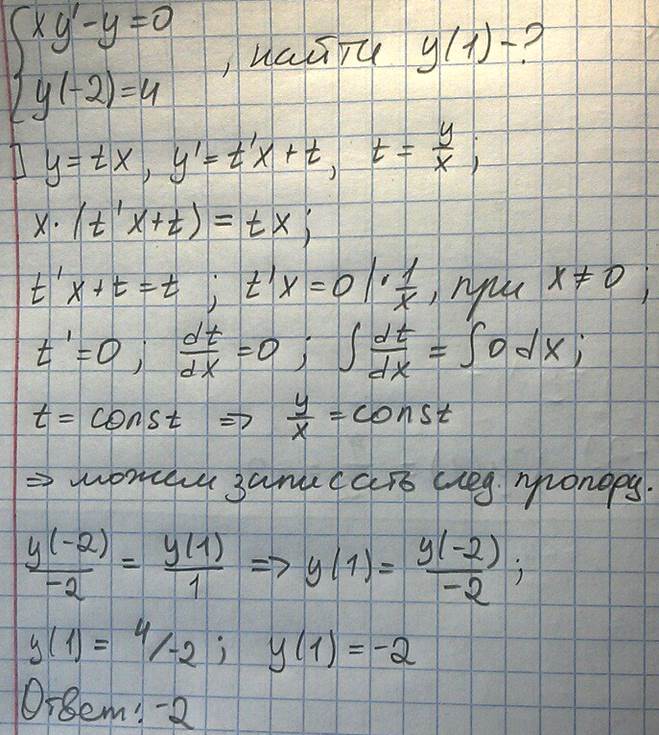 { xy' - y = 0
y(-2) = 4 , найти y(1) - ?
] y = tx, y' = t'x + t, t = y/x ;
x·(t'x+t) = tx ;
t'x + t = t ; t'x = 0 |· 1/x, при x ≠ 0 ;
t' = 0 ; dt/dx = 0 ; ∫ dt/dx = ∫ 0 dx ;
t = const ⇒ y/x = const
⇒ можем записать след. пропорц.
y(-2)/-2 = y(1)/1 ⇒ y(1) = y(-2)/-2 ;
y(1) = 4/-2 ; y(1) = -2
Ответ: -2